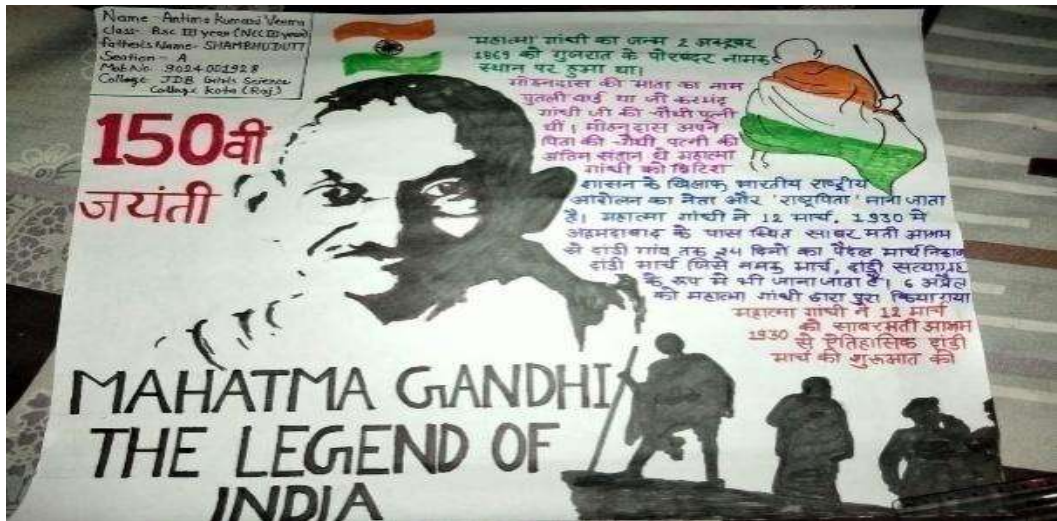 Name - Antima Kumari Verma
Class - B.sc III year (NCC III year)
Father's Name - SHAMBHUDUTT
Section - A
Mob No. 9024001928
College JDB Girls Science
College Kota (Raj)
150वी
जयंती
महात्मा गांधी का जन्म 2 अक्टूबर
1869 को गुजरात के पोरबंदर नामक
स्थान पर हुआ था।
मोहनदास की माता का नाम
पुतली बाई था जो करमचंद
गांधी जी की चौथी पत्नी
थी। मोहनदास अपने
पिता की चौथी पत्नी की
अंतिम संतान थे महात्मा
गांधी को ब्रिटिश
शासन के खिलाफ भारतीय राष्ट्रीय
आंदोलन का नेता और 'राष्ट्रपिता' माना जाता
है। महात्मा गांधी ने 12 मार्च, 1930 मे
अहमदाबाद के पास स्थित साबरमती आश्रम
से दांडी गांव तक 24 दिनों का पैदल मार्च निकाला
दांडी मार्च जिसे नमक मार्च, दांडी सत्याग्रह
के रूप मे भी जाना जाता है। 6 अप्रैल
को महात्मा गांधी द्वारा पुरा किया गया
महात्मा गांधी ने 12 मार्च
1930 को साबरमती आश्रम
से ऐतिहासिक दांडी
मार्च की शुरूआत की
MAHATMA GANDHI
THE LEGEND OF
INDIA